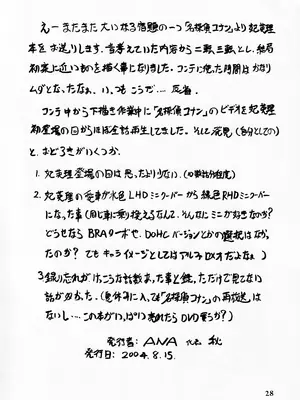 えー またまた 大いなる宿題の一つ「名探偵コナン」より 妃英理
本を お送りします。当初考えていた内容から 二転三転とし、結局
初案に近いものを描く事になりました。コンテに使った時間は かなり
ムダとな、たなぁ、い、つも こうだ… 反省。
コンテ中から下描き作業中に「名探偵コナン」のビデオを妃英理
初登場の回からほぼ全話再生してました。そして発見(自分としての)
と、おどろきがいくつか。
1. 妃英理登場の回は思、たよりない。
2. 妃英理の愛車が水色LHDミニクーパーから緑色RHDミニクーパー
にな、た事(同じ車に乗り換えるなんて、そんなにミニが好きなのか?
どうせなら BRGターボや、DOHCバージョンとかの選択はなか、
たのか? でも キャライメージとしては アルファロメオだよなぁ)
3. 録り忘れが けっこうな話数あ、た事と、録、ただけで見てない
話が多か、た。(夏休みに入、ても「名探偵コナン」の再放送は
ないし… この本がい、ぱい売れたらDVD買うか?)
発行者: ANA 代表 秋
発行日: 2004. 8. 15.
28